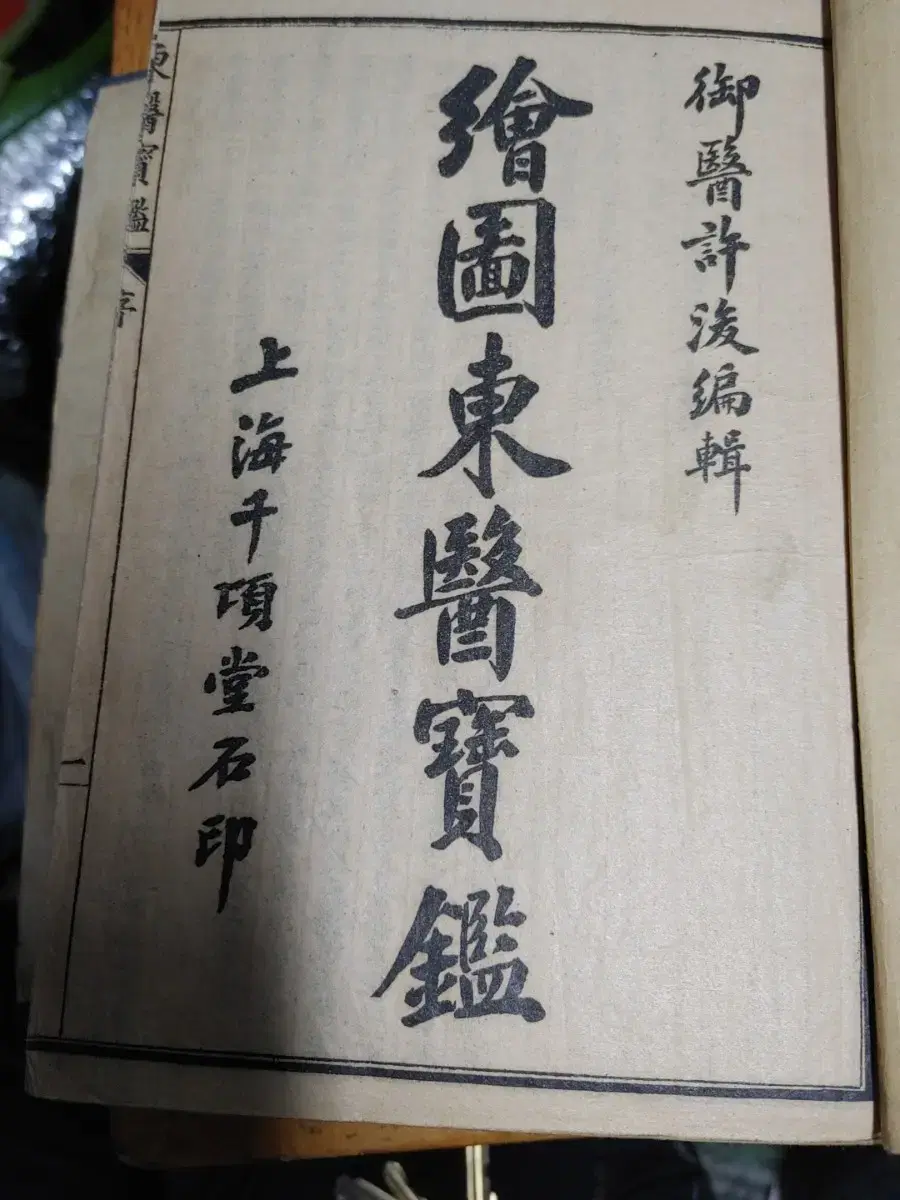 御醫許浚編輯
繪圖東醫寶鑑
上海千頃堂石印
東醫寶鑑
序
一